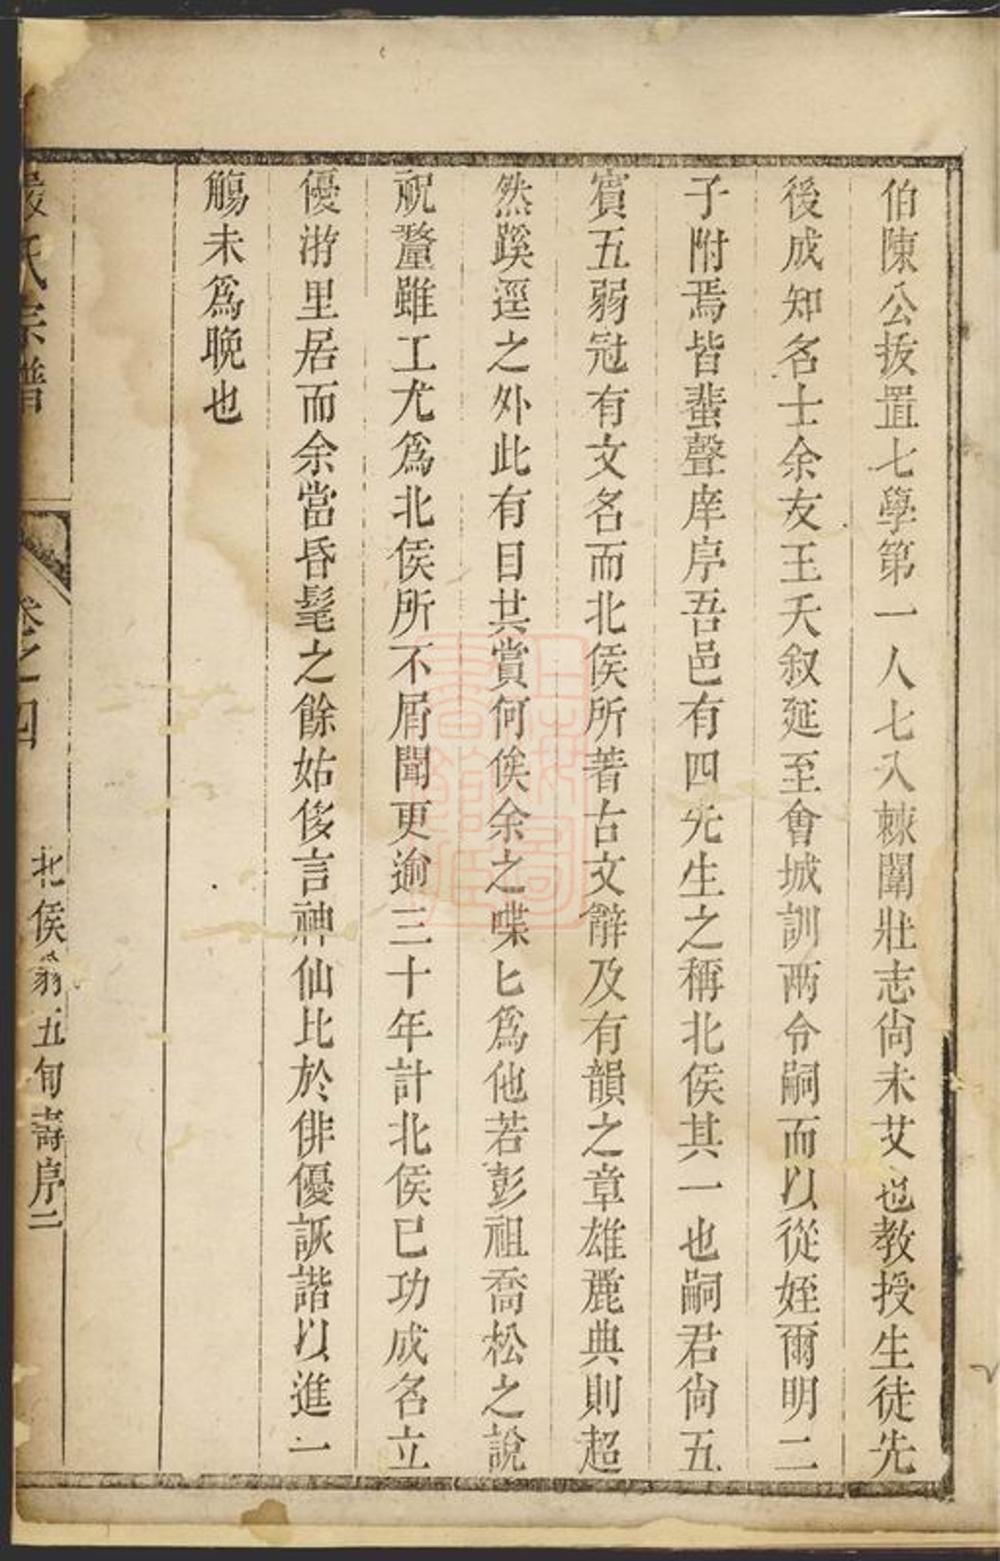 伯陳公拔置七學第一人七入棘闈壯志尙未艾也教授生徒先
後成知名士余友王天叙延至會城訓兩令嗣而以從姪爾明二
子附焉皆蜚聲庠序吾邑有四先生之稱北侯其一也嗣君尙五
賓五弱冠有文名而北侯所著古文辭及有韻之章雄麗典則超
然蹊逕之外此有目共賞何俟余之喋匕爲他若彭祖喬松之說
祝釐雖工尤爲北侯所不屑聞更逾三十年計北侯已功成名立
優游里居而余當昏髦之餘姑侈言神仙比於俳優詼諧以進一
觴未爲晚也
嚴氏宗譜
卷之四
北侯翁五旬壽序二